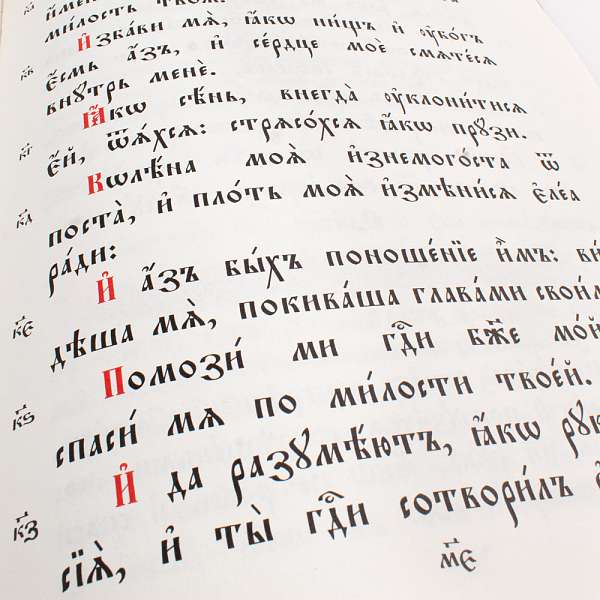 ми́лость твоѧ̀.
к҃в И҆зба́ви мѧ̀, ꙗ҆́кѡ ни́щъ и҆ ᲂу҆бо́гъ
є҆́смь а҆́зъ, и҆ се́рдце моѐ смѧте́сѧ
внꙋ́трь менѐ.
к҃г Ꙗ҆́кѡ сѣ́нь, внегда̀ ᲂу҆клони́тисѧ
є҆́й, ѿѧ́хсѧ: стрѧсо́хсѧ ꙗ҆́кѡ прꙋ́зи.
к҃д Кѡлѣ́на моѧ̑ и҆знемого́ста ѿ
поста̀, и҆ пло́ть моѧ̀ и҆змѣни́сѧ є҆ле́а
ра́ди:
к҃є И҆ а҆́зъ бы́хъ поноше́нїе и҆̀мъ: ви
дѣша мѧ̀, покива́ша глава́ми свои́
к҃ѕ Помози́ ми гдⷭ҇и бж҃е мо́й
спаси́ мѧ по ми́лости твое́й.
к҃з И҆ да разꙋмѣ́ютъ, ꙗ҆́кѡ рꙋк
сїѧ̀, и҆ ты̀ гдⷭ҇и сотвори́лъ
м҃є